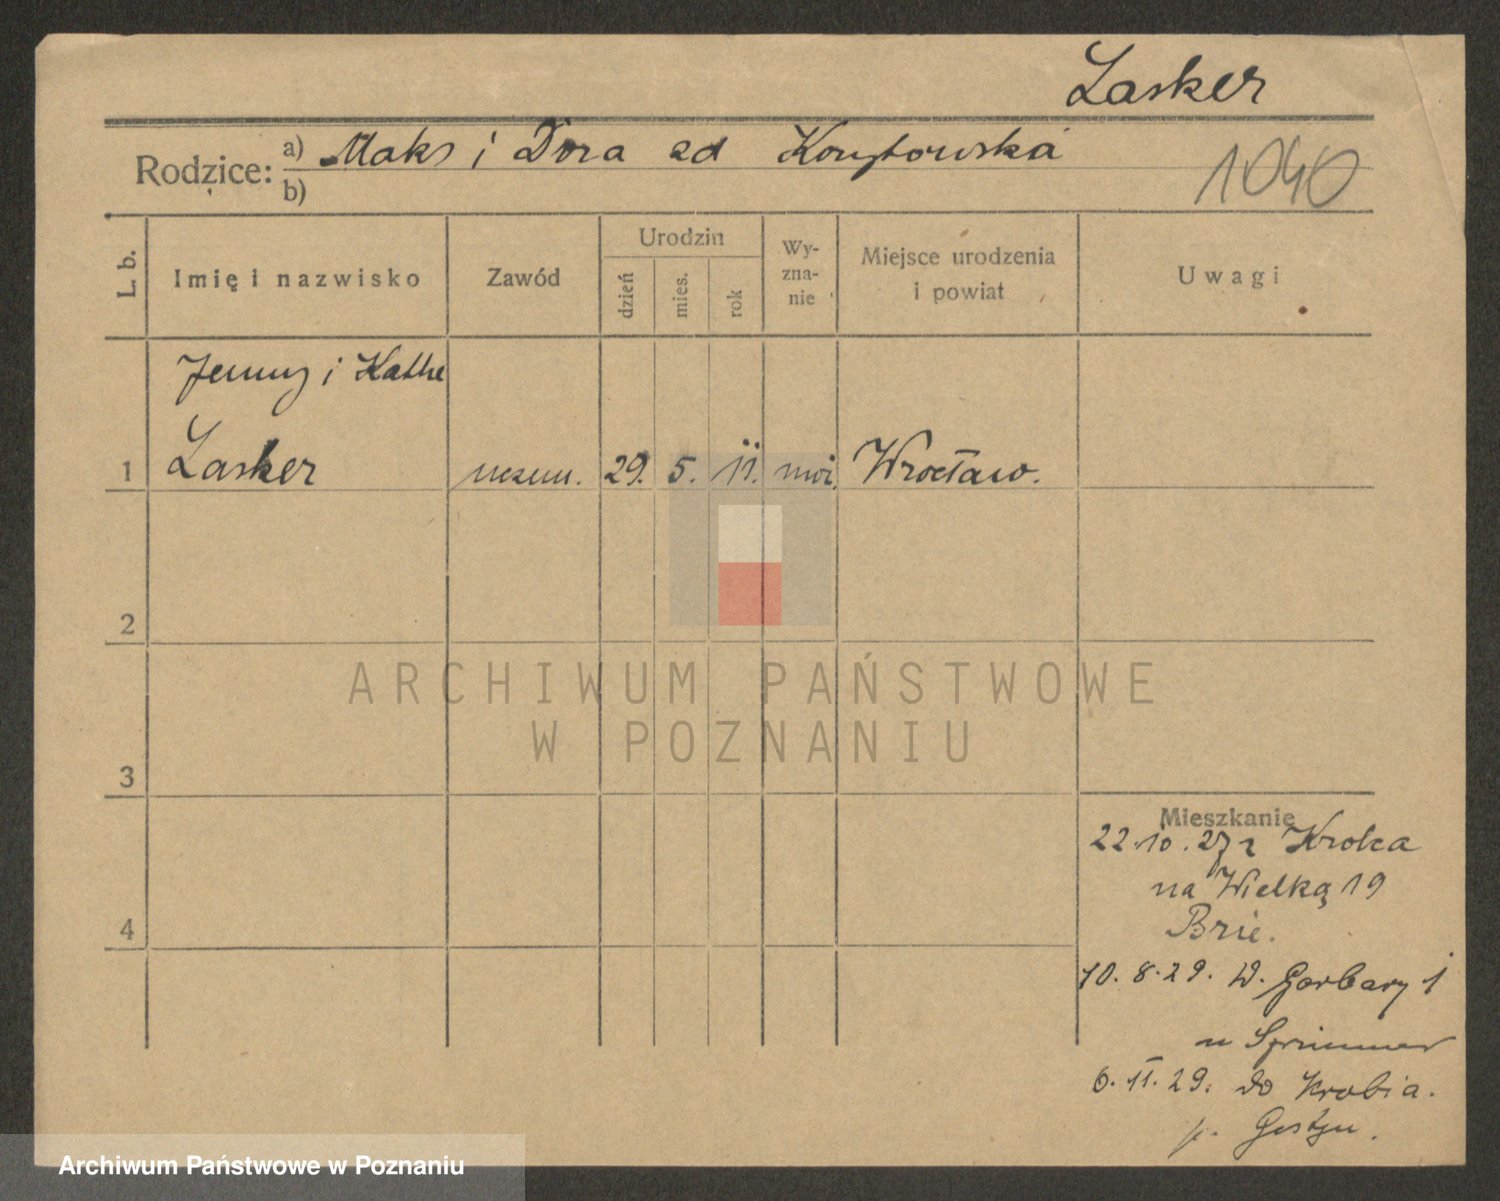 Lasker
Rodzice: a) Maks i Dora
b)
1040
L. b.
Imię i nazwisko
Zawód
Urodzin
dzień
mies.
rok
Wy-
zna-
nie
Miejsce urodzenia
i powiat
Uwagi
Jenny i Kathe
1 Lasker uczen. 29. 5. 11. moż. Wrocław.
2
3
4
Mieszkanie
22.10.27 z
na Wielką 19
10. 8. 29. W. Garbary 1
u
6. 11. 29. do Krobia.
p. Gostyn.
ARCHIWUM PAŃSTWOWE
W POZNANIU
Archiwum Państwowe w Poznaniu